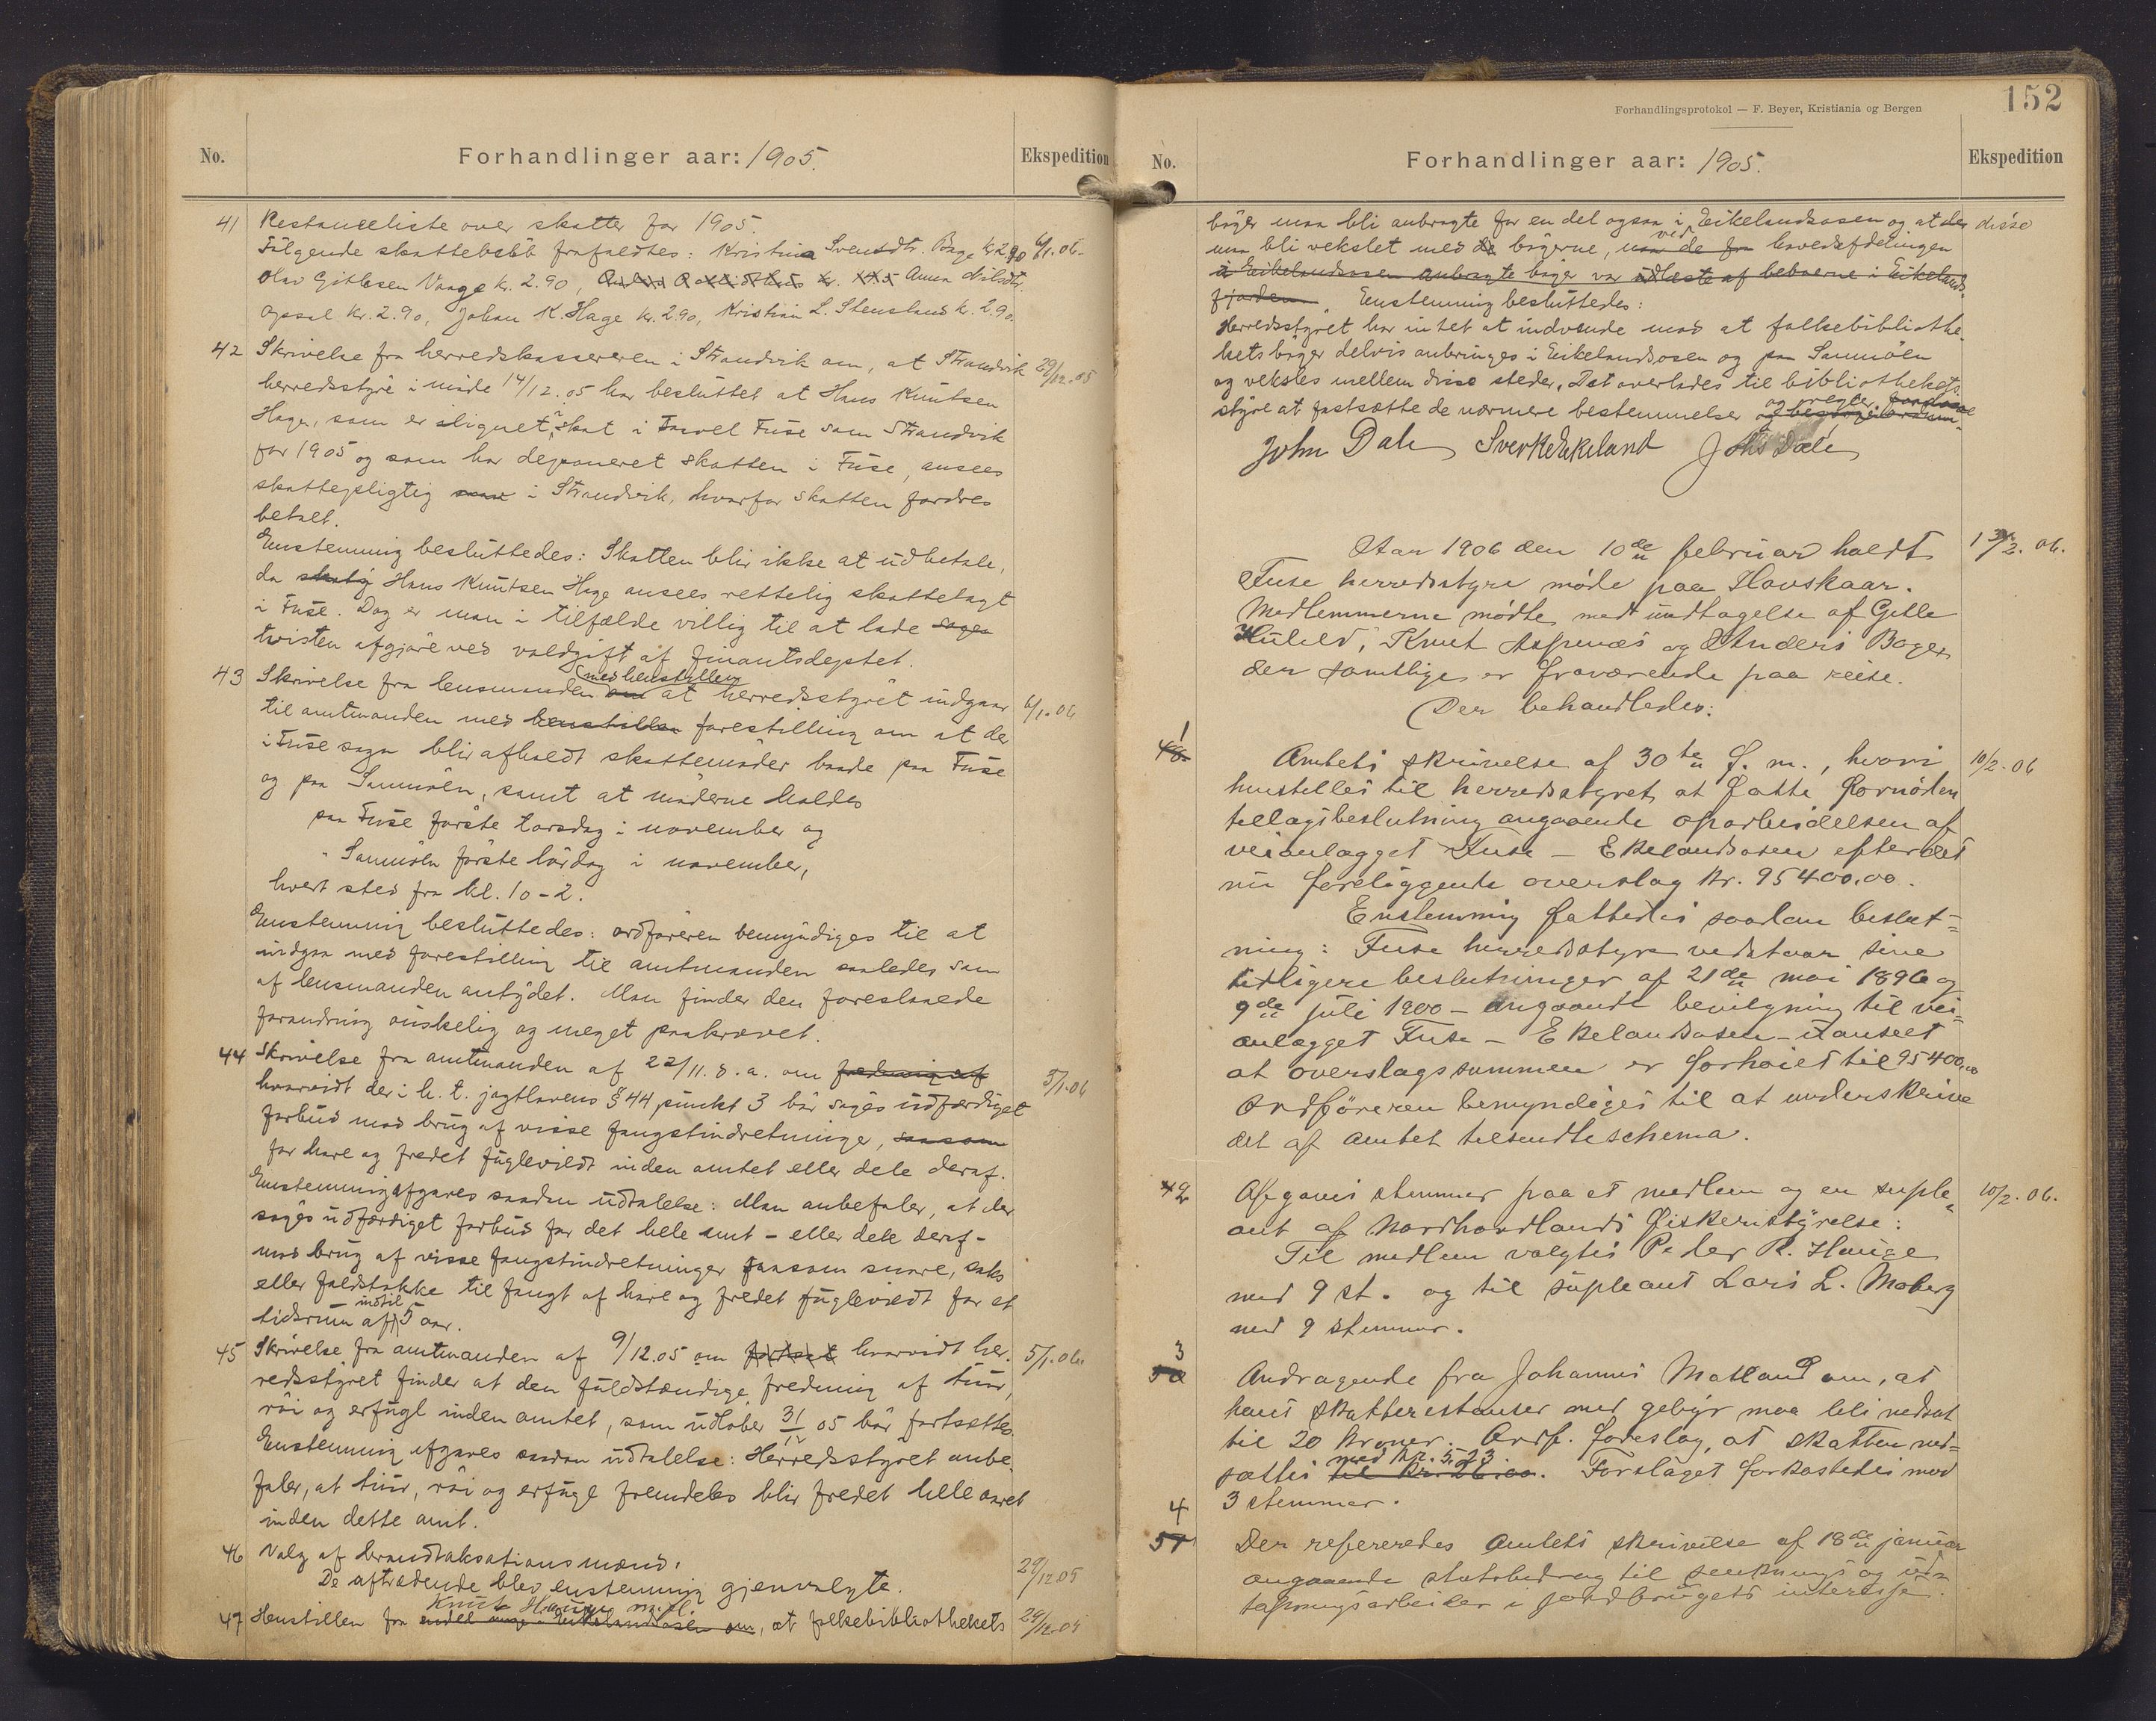 No.
Forhandlinger aar: 1905.
Ekspedition
41 Restanceliste over skatter for 1905.
Følgende skattebeløb frafaldtes: Kristina Svendsdtr. Bage kr 2.90 6/1.06.
Olav Gitlesen Vaage kr. 2.90, Anna Nilsdtr.
Opsal kr. 2.90, Johan K. Hage kr. 2.90, Kristian L. Stensland kr. 2.90.
42 Skrivelse fra herredskassereren i Strandvik om, at Strandvik 29/12.05
herredsstyre i møde 14/12.05 har besluttet at Hans Knutsen
Hage, som er ilignet skat i saavel Fuse som Strandvik
for 1905 og som har deponeret skatten i Fuse, ansees
skattepligtig i Strandvik, hvorfor skatten fordres
betalt.
Enstemmig besluttedes: Skatten blir ikke at udbetale,
da Hans Knutsen Hage ansees rettelig skattelagt
i Fuse. Dog er man i tilfælde villig til at lade sagen
tvisten afgjøre ved voldgift af finantsdeptet.
(med henstillen
43 Skrivelse fra lensmanden om at herredsstyret indgaar 6/1.06
til amtmanden med henstillen forestilling om at der
i Fuse sogn blir afholdt skattemøder baade paa Fuse
og paa Sunmøen, samt at møderne holdes
paa Fuse første torsdag i november og
" Sunmøen første lørdag i november,
hvert sted fra kl. 10-2.
Enstemmig besluttedes: ordføreren bemyndiges til at
indgaa med forestilling til amtmanden saaledes som
af lensmanden antydet. Man finder den foreslaaede
forandring ønskelig og meget paakrævet.
44 Skrivelse fra amtmanden af 22/11. d. a. om fredning af 5/1.06
hvorvidt der i h. t. jagtlovens § 44 punkt 3 bør søges udfærdiget
forbud mod brug af visse fangstindretninger, saasom
for hare og fredet fuglevildt inden amtet eller dele deraf.
Enstemmig afgaves saadan udtalelse: Man anbefaler, at der
søges udfærdiget forbud for det hele amt - eller dele deraf -
mod brug af visse fangstindretninger saasom snare, saks
eller faldstokke til fangst af hare og fredet fuglevildt for et
indtil
tidsrum af 5 aar.
45 Skrivelse fra amtmanden af 9/12.05 om hvorvidt her- 5/1.06.
redsstyret finder at den fuldstændige fredning af tiur,
røi og orfugl inden amtet, som udløber 31/12 05 bør fortsættes.
Enstemmig afgaves saadan udtalelse: Herredsstyret anbe-
faler, at tiur, røi og orfugl fremdeles blir fredet hele aaret
inden dette amt.
46 Valg af brandtaksationsmænd. 29/12.05
De aftrædende blev enstemmig gjenvalgte.
Knut Hauge m.fl.
47 Henstillen fra endel unge i Eikelandsosen om, at folkebibliothekets 29/12.05
152
Forhandlingsprotokol — F. Beyer, Kristiania og Bergen
No.
Forhandlinger aar: 1905.
Ekspedition
bøger maa bli anbragte for en del ogsaa i Eikelandsosen og at der disse
maa bli vekslet med bøgerne, naa de fra hovedafdelingen
i Eikelandsosen anbragte bøger var udlæste af beboerne i Eikelands-
fjorden. Enstemmig besluttedes:
Herredsstyret har intet at indvende mod at folkebibliothe-
kets bøger delvis anbringes i Eikelandsosen og paa Sunmøen
og veksles mellem disse steder. Det overlades til bibliothekets
styre at fastsætte de nærmere bestemmelser og regler
John Dale Sverk Ekeland Johs Dale
Aar 1906 den 10de februar holdt 13/2. 06.
Fuse herredsstyre møde paa Havskaar.
Medlemmerne mødte med undtagelse af Gitle
Huleld, Knut Aspenæs og Anders Boge,
der samtlige er fraværende paa reise.
Der behandledes:
1 48 Amtets skrivelse af 30te f. m., hvori 10/2.06
henstilles til herredsstyret at fatte fornøden
tillægsbeslutning angaaende oparbeidelsen af
veianlægget Fuse - Ekelandsosen efter det
nu foreliggende overslag kr. 95400,00.
Enstemmig fattedes saadan beslut-
ning: Fuse herredsstyre vedstaar sine
tidligere beslutninger af 21de mai 1896 og
9de juli 1900 - angaaende bevilgning til vei-
anlægget Fuse - Ekelandsosen - uanseet
at overslagssummen er forhøiet til 95400,00
Ordføreren bemyndiges til at underskrive
det af amtet tilsendte schema.
2 49 Afgaves stemmer paa et medlem og en suple- 10/2.06.
ant af Nordhordlands fiskeristyrelse:
Til medlem valgtes Peder R. Hauge
med 9 st. og til supleant Lars L. Moberg
med 9 stemmer.
3 50 Andragende fra Johannes Matland om, at
hans skatterestanser med gebyr maa bli nedsat
til 20 kroner. Ordf. foreslog, at skatten ned-
med kr. 5.23
sættes til kr. 26.00. Forslaget forkastedes mod
3 stemmer.
4
51 Der refereredes Amtets skrivelse af 18de januar
angaaende statsbidrag til senknings og ud-
tapningsarbeider i jordbrugets interesse